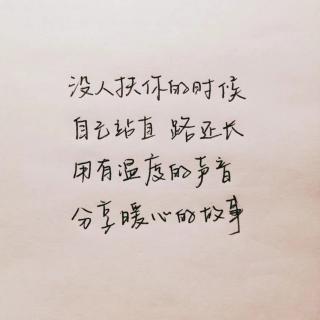 没人扶你的时候
自己站直 路还长
用有温度的声音
分享暖心的故事